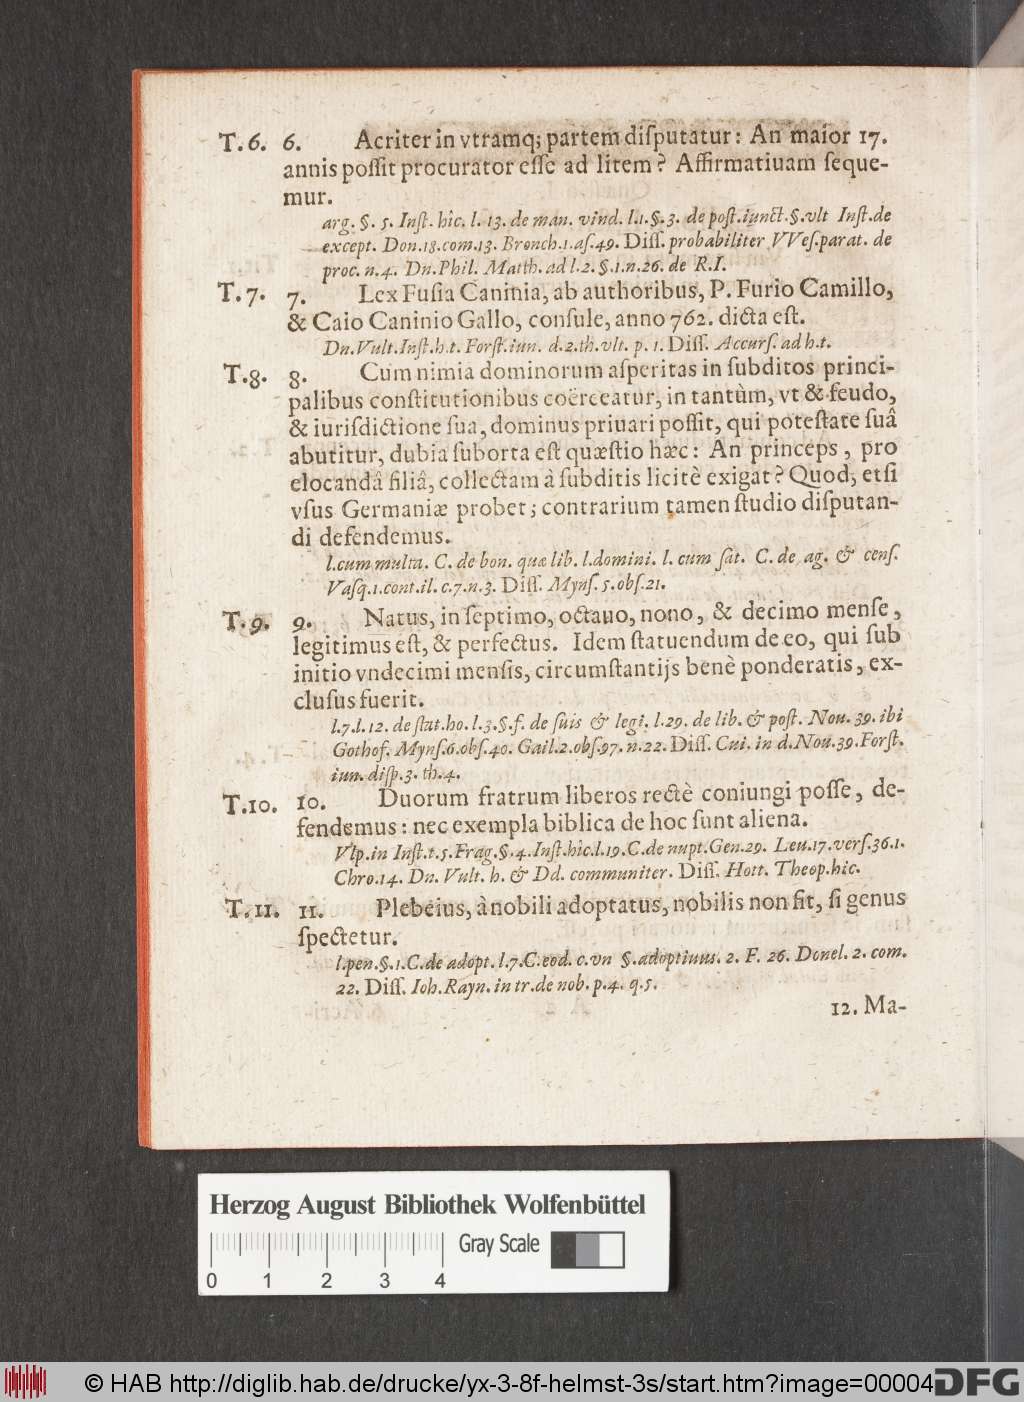 T.6. 6. Acriter in vtramq; partem disputatur: An maior 17.
annis possit procurator esse ad litem? Affirmatiuam seque-
mur.
arg. §. 5. Inst. hîc. l. 13. de man. vind. l.1.§.3. de post.iunct.§.vlt Inst.de
except. Don.18.com.13. Bronch.1.as.49. Diss. probabiliter VVes.parat. de
proc. n.4. Dn.Phil. Matth. ad l.2. §.1.n.26. de R.I.
T.7. 7. Lex Fusia Caninia, ab authoribus, P. Furio Camillo,
& Caio Caninio Gallo, consule, anno 762. dicta est.
Dn.Vult.Inst.h.t. Forst.iun. d.2.th.vlt. p. 1. Diss. Accurs. ad h.t.
T.8. 8. Cum nimia dominorum asperitas in subditos princi-
palibus constitutionibus coërceatur, in tantùm, vt & feudo,
& iurisdictione sua, dominus priuari possit, qui potestate suâ
abutitur, dubia suborta est quæstio hæc: An princeps, pro
elocandâ filiâ, collectam à subditis licitè exigat? Quod, etsi
vsus Germaniæ probet; contrarium tamen studio disputan-
di defendemus.
l.cum multa. C. de bon. quæ lib. l.domini. l. cum sat. C. de ag. & cens.
Vasq.1.cont.il. c.7.n.3. Diss. Myns. 5.obs.21.
T.9. 9. Natus, in septimo, octauo, nono, & decimo mense,
legitimus est, & perfectus. Idem statuendum de eo, qui sub
initio vndecimi mensis, circumstantijs benè ponderatis, ex-
clusus fuerit.
l.7.l.12. de stat.ho. l.3.§.f. de suis & legi. l.29. de lib. & post. Nou. 39. ibi
Gothof. Myns.6.obs.40. Gail.2.obs.97. n.22. Diss. Cui. in d.Nou.39.Forst.
iun. disp.3. th.4.
T.10. 10. Duorum fratrum liberos rectè coniungi posse, de-
fendemus: nec exempla biblica de hoc sunt aliena.
Vlp.in Inst.t.5.Frag.§.4.Inst.hîc.l.19.C.de nupt.Gen.29. Leu.17.vers.36.1.
Chro.14. Dn. Vult. h. & Dd. communiter. Diss. Hott. Theop.hic.
T.11. 11. Plebeius, à nobili adoptatus, nobilis non fit, si genus
spectetur.
l.pen.§.1.C.de adopt. l.7.C.eod. c.vn §.adoptiuus. 2. F. 26. Donel. 2. com.
22. Diss. Ioh.Rayn. in tr.de nob. p.4. q.5.
12. Ma-
Herzog August Bibliothek Wolfenbüttel
Gray Scale
0 1 2 3 4
© HAB http://diglib.hab.de/drucke/yx-3-8f-helmst-3s/start.htm?image=00004
DFG